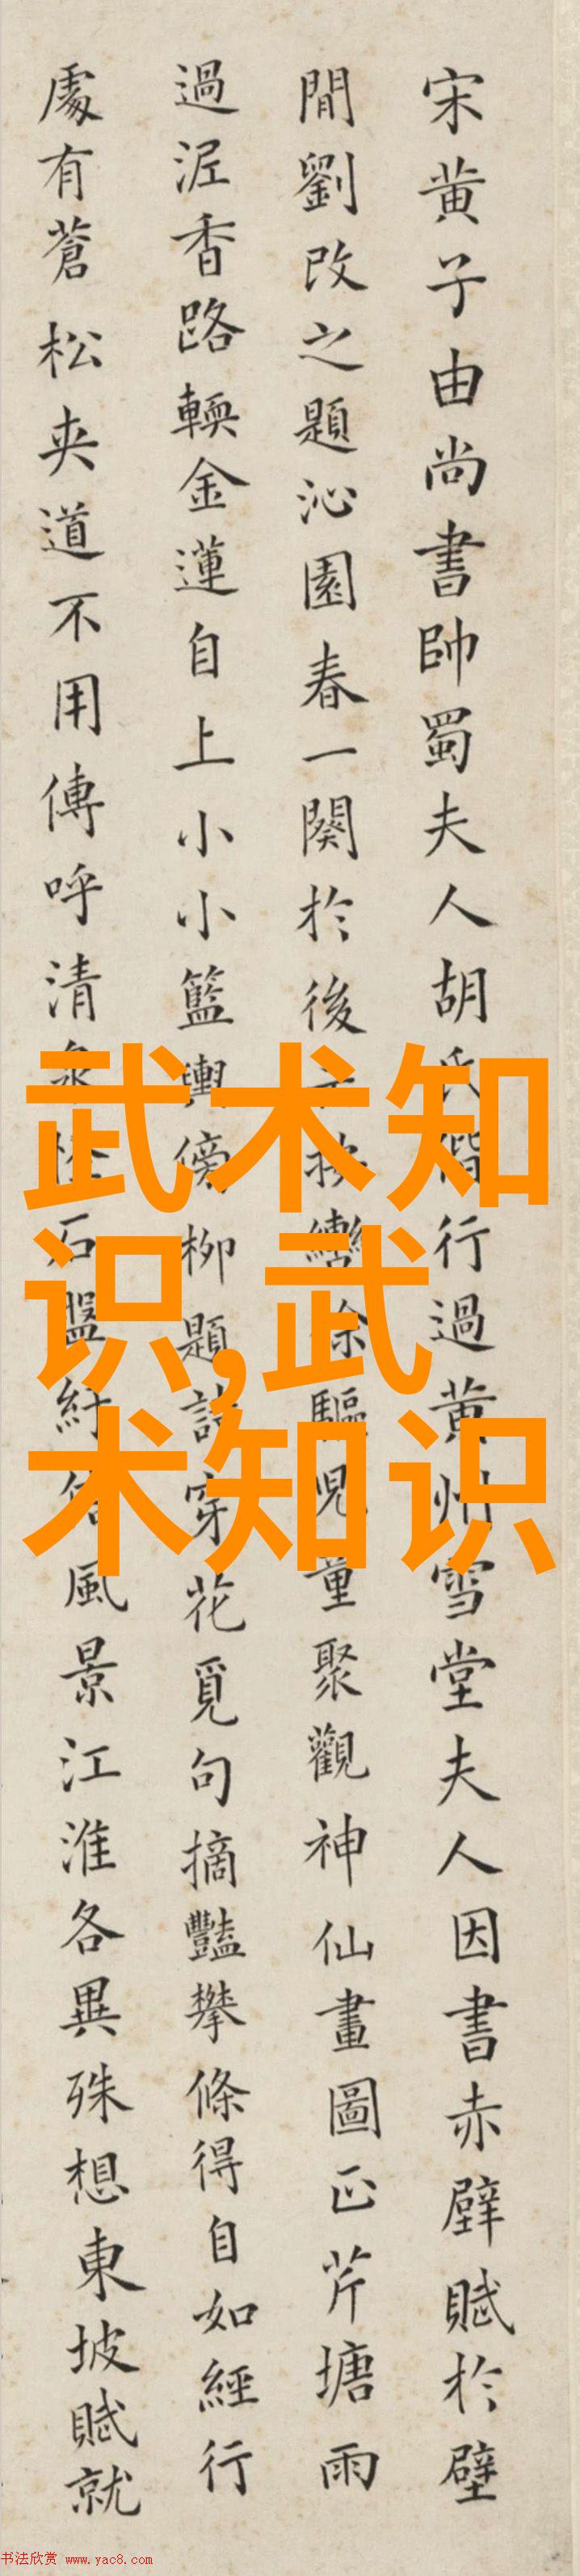 宋黄子由尚書帥蜀夫人胡氏偕行過黄州雪堂夫人因書赤壁賦於壁
間劉改之題沁園春一闋於後云按轡徐驅兒童聚觀神仙畫圖正芹塘雨
過泥香路輭金蓮自上小小籃輿傍柳題詩穿花覓句摘豔攀條得自如經行
處有蒼松夾道不用傳呼清泉怪石盤紆信風景江淮各異殊想東坡賦就
武术知
识,武
术知识
书法欣赏 www.yac8.com